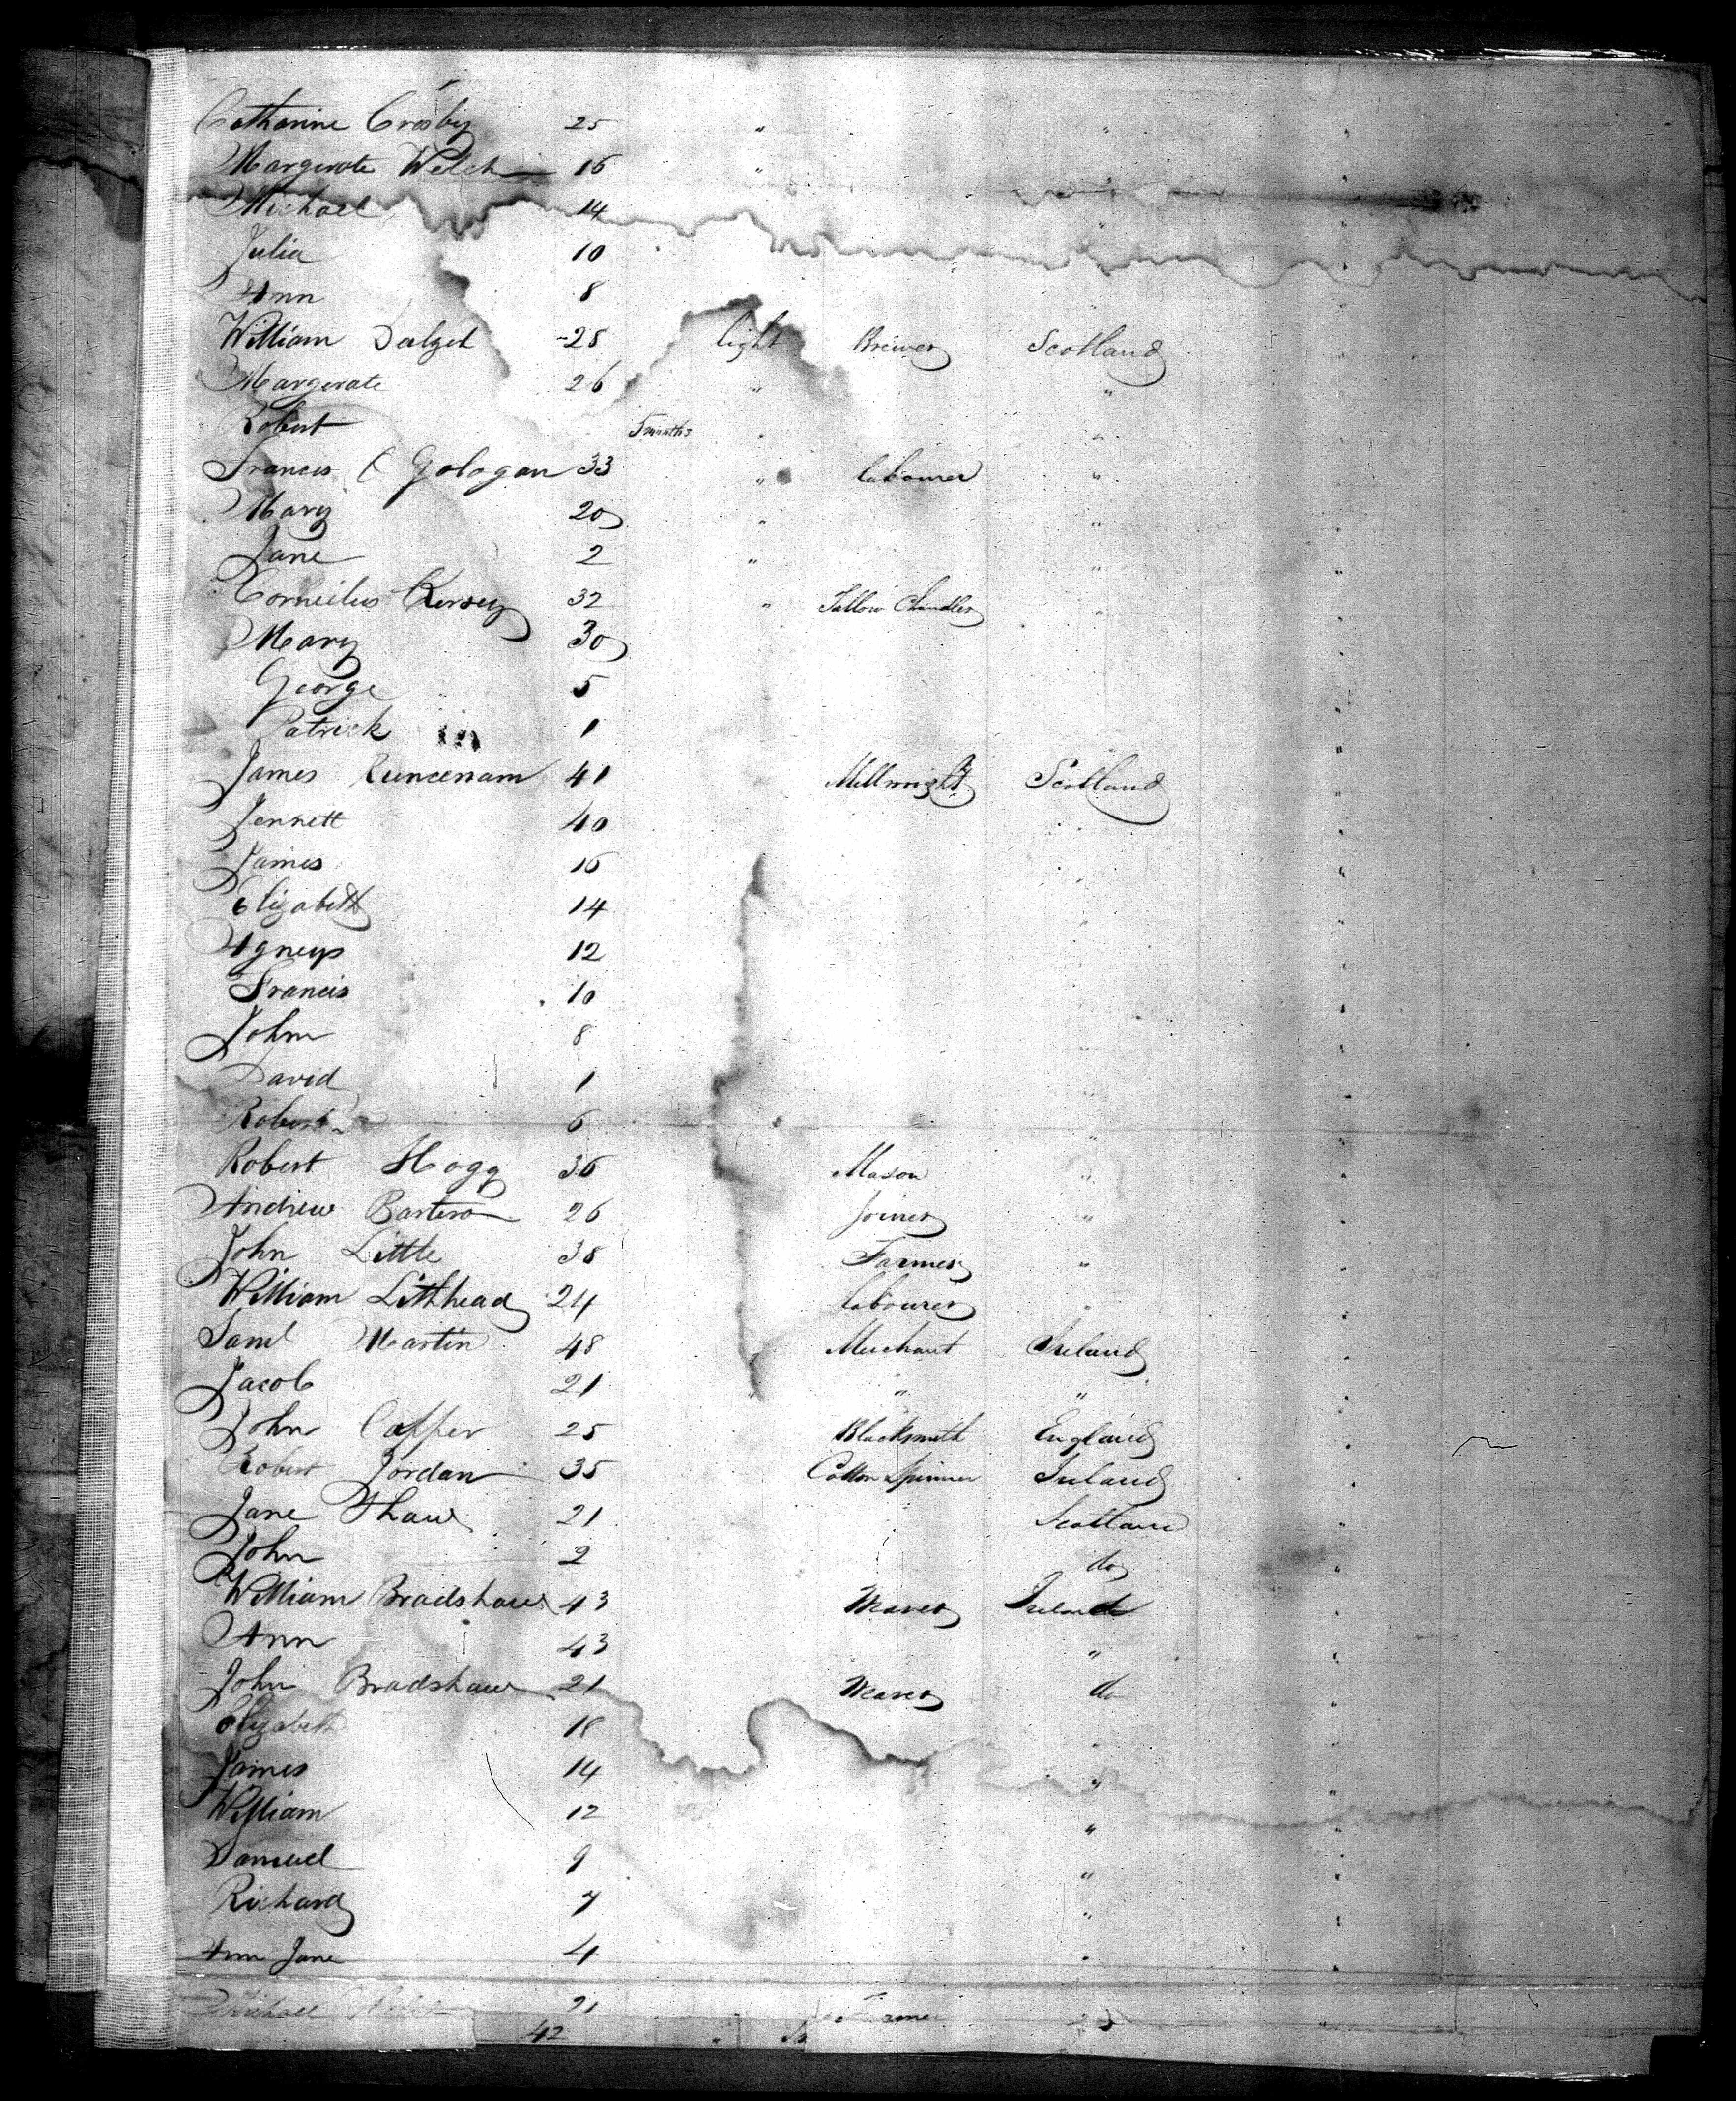 Catharine Crosby 25 " "
Margerate Welch 16 "
Michael 14 "
Julia 10
Ann 8
William Dalgel 28 light Brewer Scotland
Margerate 26 " "
Robert 5 months " "
Francis Gologan 33 " labourer "
Mary 20 " "
Jane 2 " "
Corneilus Kersey 32 " Tallow Chandler "
Mary 30
George 5 "
Patrick 1 "
James 41 Millwright Scotland "
Jennett 40 "
James 16 "
Elizabeth 14 "
Agness 12 "
Francis 10 "
John 8 "
David 1 "
Robert 6 "
Robert Hogg 36 Mason " "
Andrew 26 Joiner " "
John Little 38 Farmer " "
William Lithhead 24 labourer " "
Saml Martin 48 Merchant Ireland "
Jacob 21 " " "
John Capper 25 Blacksmith England "
Robert Jordan 35 Cotton Spinner Ireland "
Jane Shaw 21 Scotland "
John 2 do "
William Bradshaw 43 Weaver Ireland "
Ann 43 " "
John Bradshaw 21 Weaver do "
Elizabeth 18 " "
James 14 " "
William 12 " "
Samuel 9 " "
Richard 7 " "
Ann Jane 4 " "
Michael Welch 21 Farmer
42 "